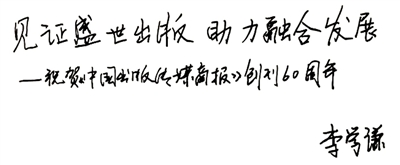 见证盛世出版 助力融合发展
——祝贺《中国出版传媒商报》创刊60周年
李学谦